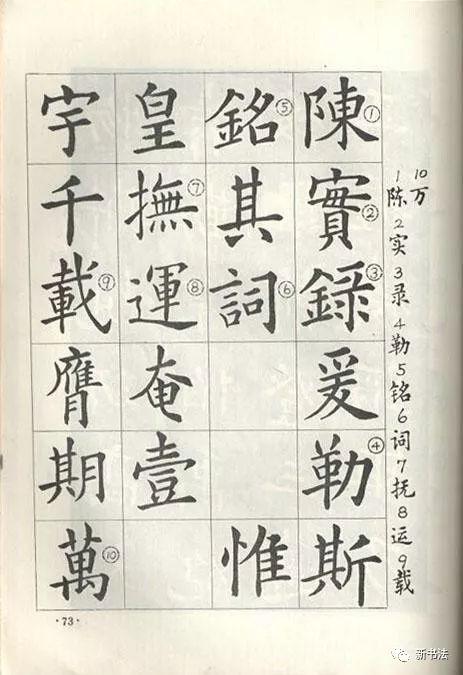 陳①實②録③爰勒④斯
銘⑤其詞⑥惟
皇撫⑦運⑧奄壹
宇千載⑨膺期萬⑩
10万
1陈2实3录4勒5铭6词7抚8运9载
·73·
新书法